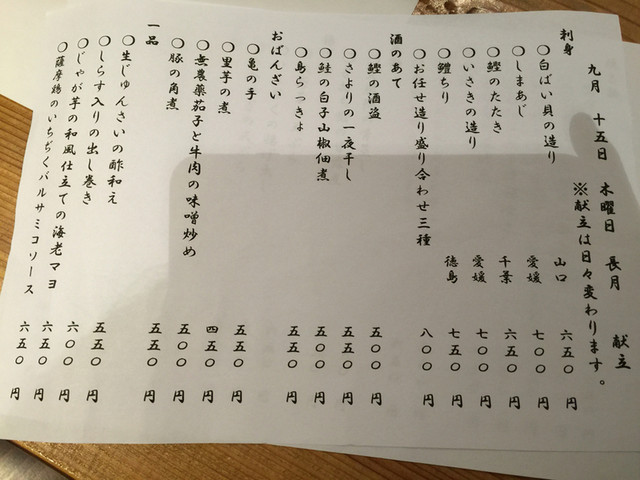 九月 十五日 木曜日 長月 献立
※献立は日々変わります。
刺身
〇白ばい貝の造り 山口 六五〇円
〇しまあじ 愛媛 七〇〇円
〇鰹のたたき 千葉 六五〇円
〇いさきの造り 愛媛 七〇〇円
〇鱧ちり 徳島 七五〇円
〇お任せ造り盛り合わせ三種 八〇〇円
酒のあて
〇鰹の酒盗 五〇〇円
〇さよりの一夜干し 五五〇円
〇鮭の白子山椒佃煮 五〇〇円
〇島らっきょ 五五〇円
おばんざい
〇亀の手 五五〇円
〇里芋の煮 四五〇円
〇無農薬茄子と牛肉の味噌炒め 五〇〇円
〇豚の角煮 五五〇円
一品
〇生じゅんさいの酢和え 五五〇円
〇しらす入りの出し巻き 六〇〇円
〇じゃが芋の和風仕立ての海老マヨ 六五〇円
〇薩摩鶏のいちぢくバルサミコソース 六五〇円